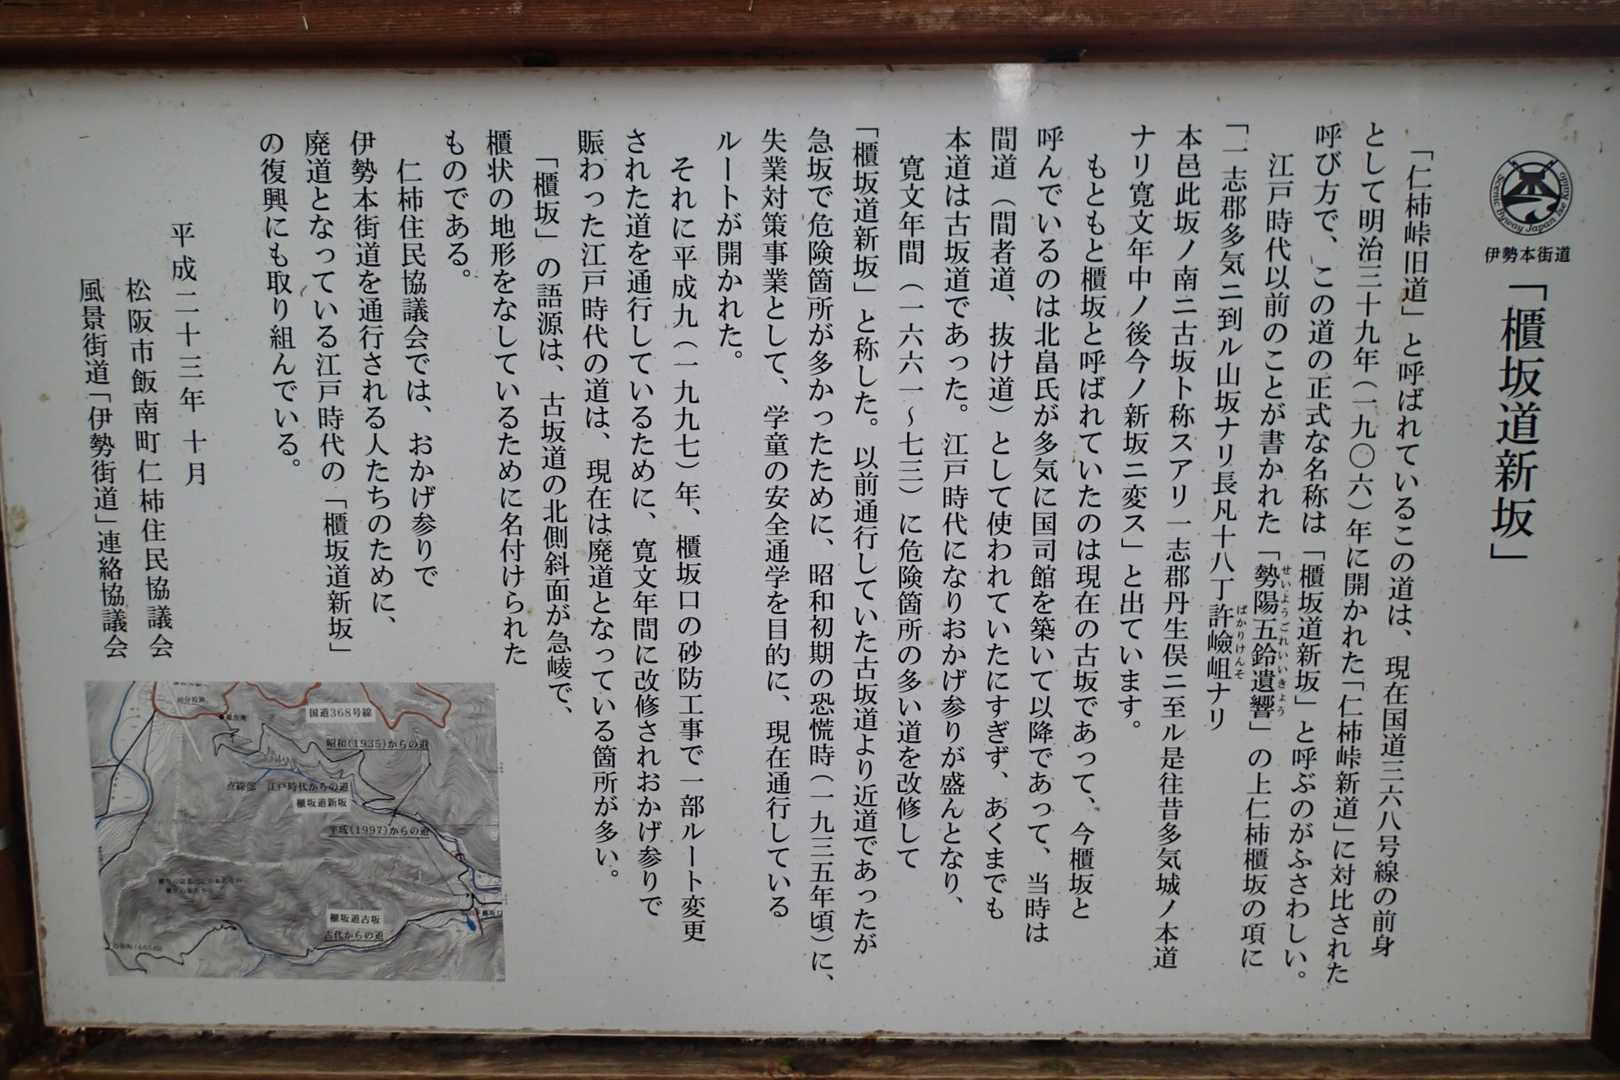 Scenic Byway Japan Ise Kaido
伊勢本街道
「櫃坂道新坂」
「仁柿峠旧道」と呼ばれているこの道は、現在国道三六八号線の前身
として明治三十九年(一九〇六)年に開かれた「仁柿峠新道」に対比された
呼び方で、この道の正式な名称は「櫃坂道新坂」と呼ぶのがふさわしい。
江戸時代以前のことが書かれた「勢陽五鈴遺響」の上仁柿櫃坂の項に
せいようごれいいきょう
「一志郡多気ニ到ル山坂ナリ長凡十八丁許嶮岨ナリ
ばかりけんそ
本邑此坂ノ南ニ古坂ト称スアリ一志郡丹生俣ニ至ル是往昔多気城ノ本道
ナリ寛文年中ノ後今ノ新坂ニ変ス」と出ています。
もともと櫃坂と呼ばれていたのは現在の古坂であって、今櫃坂と
呼んでいるのは北畠氏が多気に国司館を築いて以降であって、当時は
間道(間者道、抜け道)として使われていたにすぎず、あくまでも
本道は古坂道であった。江戸時代になりおかげ参りが盛んとなり、
寛文年間(一六六一〜七三)に危険箇所の多い道を改修して
「櫃坂道新坂」と称した。以前通行していた古坂道より近道であったが
急坂で危険箇所が多かったために、昭和初期の恐慌時(一九三五年頃)に、
失業対策事業として、学童の安全通学を目的に、現在通行している
ルートが開かれた。
それに平成九(一九九七)年、櫃坂口の砂防工事で一部ルート変更
された道を通行しているために、寛文年間に改修されおかげ参りで
賑わった江戸時代の道は、現在は廃道となっている箇所が多い。
「櫃坂」の語源は、古坂道の北側斜面が急崚で、
櫃状の地形をなしているために名付けられた
ものである。
仁柿住民協議会では、おかげ参りで
伊勢本街道を通行される人たちのために、
廃道となっている江戸時代の「櫃坂道新坂」
の復興にも取り組んでいる。
平成二十三年 十月
松阪市飯南町仁柿住民協議会
風景街道「伊勢街道」連絡協議会
国道368号線
昭和(1935)からの道
点線部 江戸時代からの道
櫃坂道新坂
平成(1997)からの道
櫃坂道古坂
古代からの道